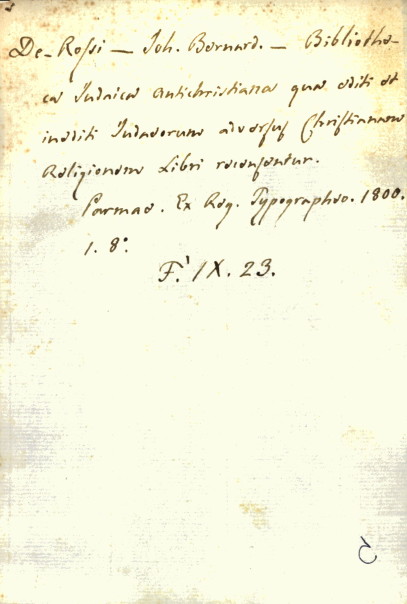 De-Rossi — Joh. Bernard. — Bibliothe-
ca Judaica Antichristiana qua editi et
inediti Judaeorum adversus Christianam
Religionem Libri recensentur.
Parmae. Ex Reg. Typographeo. 1800.
1. 8°.
F.' IX. 23.